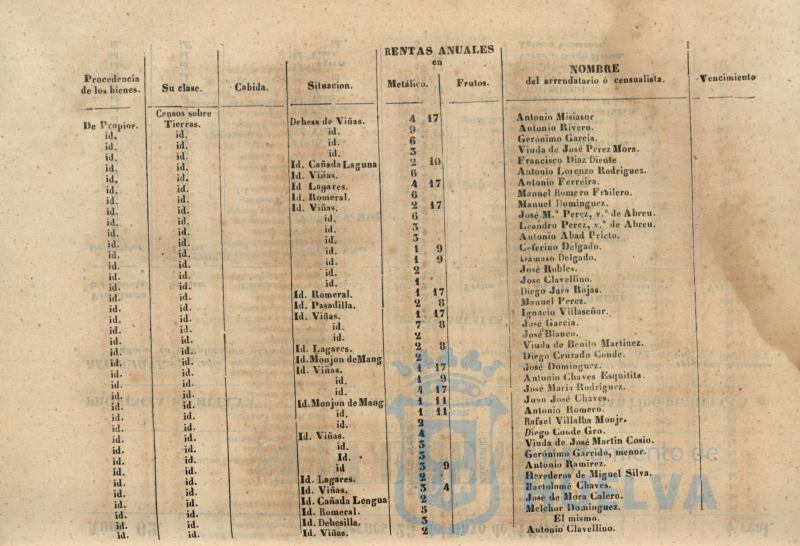 RENTAS ANUALES
en
Procedencia de los bienes. Su clase. Cabida. Situacion. Metálico. Frutos. NOMBRE del arrendatario ó censualista. Vencimiento
De Propios. Censos sobre Tierras. Dehesa de Viñas. 4 17 Antonio Misiasor
id. id. id. 9 Antonio Rivero.
id. id. id. 6 Gerónimo García.
id. id. id. 3 Viuda de José Perez Mora.
id. id. Id. Cañada Laguna 2 10 Francisco Diaz Diente
id. id. Id. Viñas. 6 Antonio Lorenzo Rodriguez.
id. id. Id Lagares. 4 17 Antonio Ferreira.
id. id. Id. Romeral. 6 Manuel Romero Frailero.
id. id. Id. Viñas. 2 17 Manuel Dominguez.
id. id. id. 6 José M.ª Perez, v.ª de Abreu.
id. id. id. 3 Leandro Perez, v.ª de Abreu.
id. id. id. 3 Antonio Abad Prieto.
id. id. id. 1 9 Ceferino Delgado.
id. id. id. 1 9 Damaso Delgado.
id. id. id. 2 José Robles.
id. id. id. 1 Jose Clavellino.
id. id. Id. Romeral. 1 17 Diego Jara Rojas.
id. id. Id. Pasadilla. 2 8 Manuel Perez.
id. id. Id. Viñas. 1 17 Ignacio Villaseñor.
id. id. id. 7 8 José García.
id. id. id. 2 José Blanco.
id. id. Id. Lagares. 2 8 Viuda de Benito Martinez.
id. id. Id. Monjon de Mang 2 Diego Cruzado Conde.
id. id. Id. Viñas. 1 17 José Dominguez.
id. id. id. 1 9 Antonio Chaves Esquitita.
id. id. id. 4 17 José María Rodriguez.
id. id. Id. Monjon de Mang 1 11 Juan José Chaves.
id. id. id. 1 11 Antonio Romero.
id. id. id. 2 Rafael Villalba Monjr.
id. id. Id. Viñas. 4 Diego Conde Gro.
id. id. id. 3 Viuda de José Martin Cosio.
id. id. Id. 3 Gerónimo Garrido, menor.
id. id. id 3 9 Antonio Ramirez.
id. id. Id. Lagares. 2 Herederos de Miguel Silva.
id. id. Id. Viñas. 3 4 Bartolomé Chaves.
id. id. Id. Cañada Lengua 2 José de Mora Calero.
id. id. Id. Romeral. 5 Melchor Dominguez.
id. id. Id. Dehesilla. 3 El mismo.
id. id. Id. Viñas. 2 Antonio Clavellino.